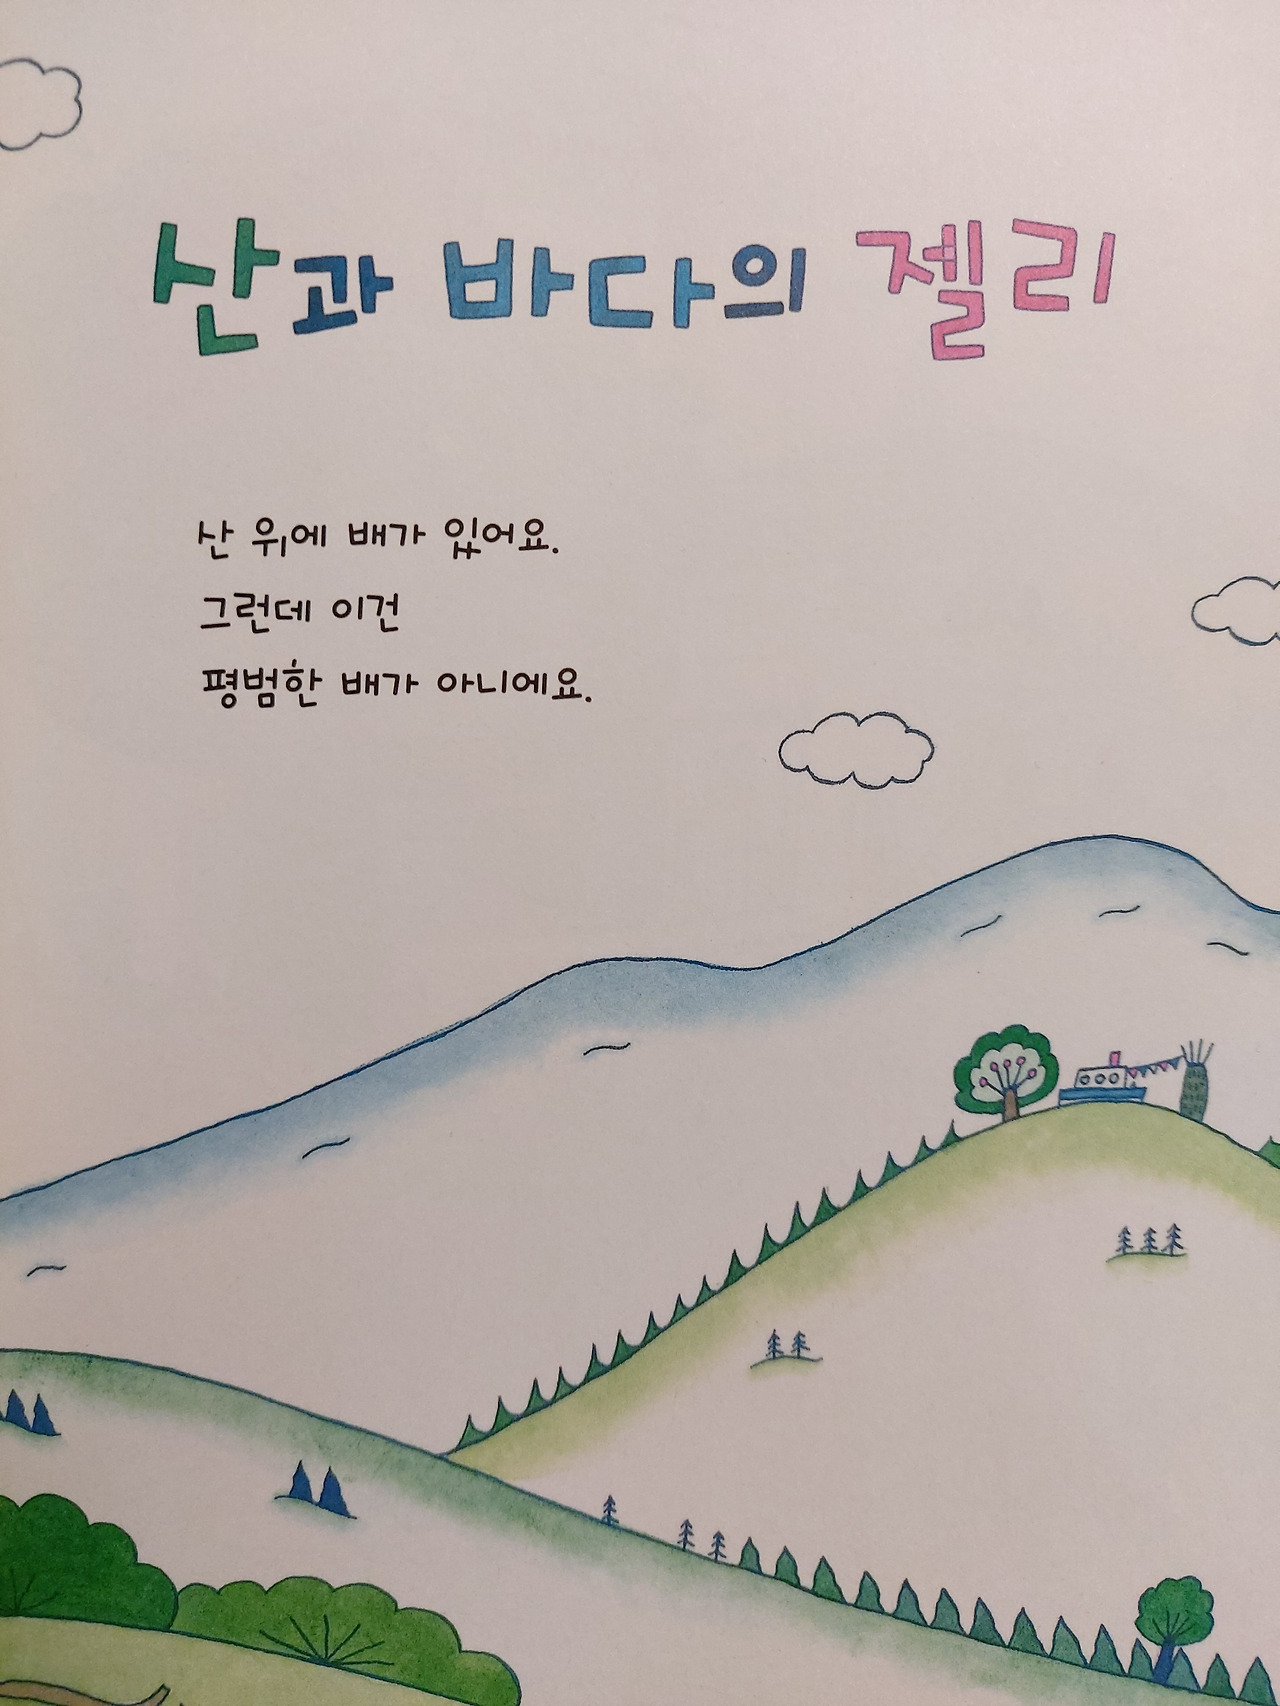 산과 바다의 젤리
산 위에 배가 있어요.
그런데 이건
평범한 배가 아니에요.